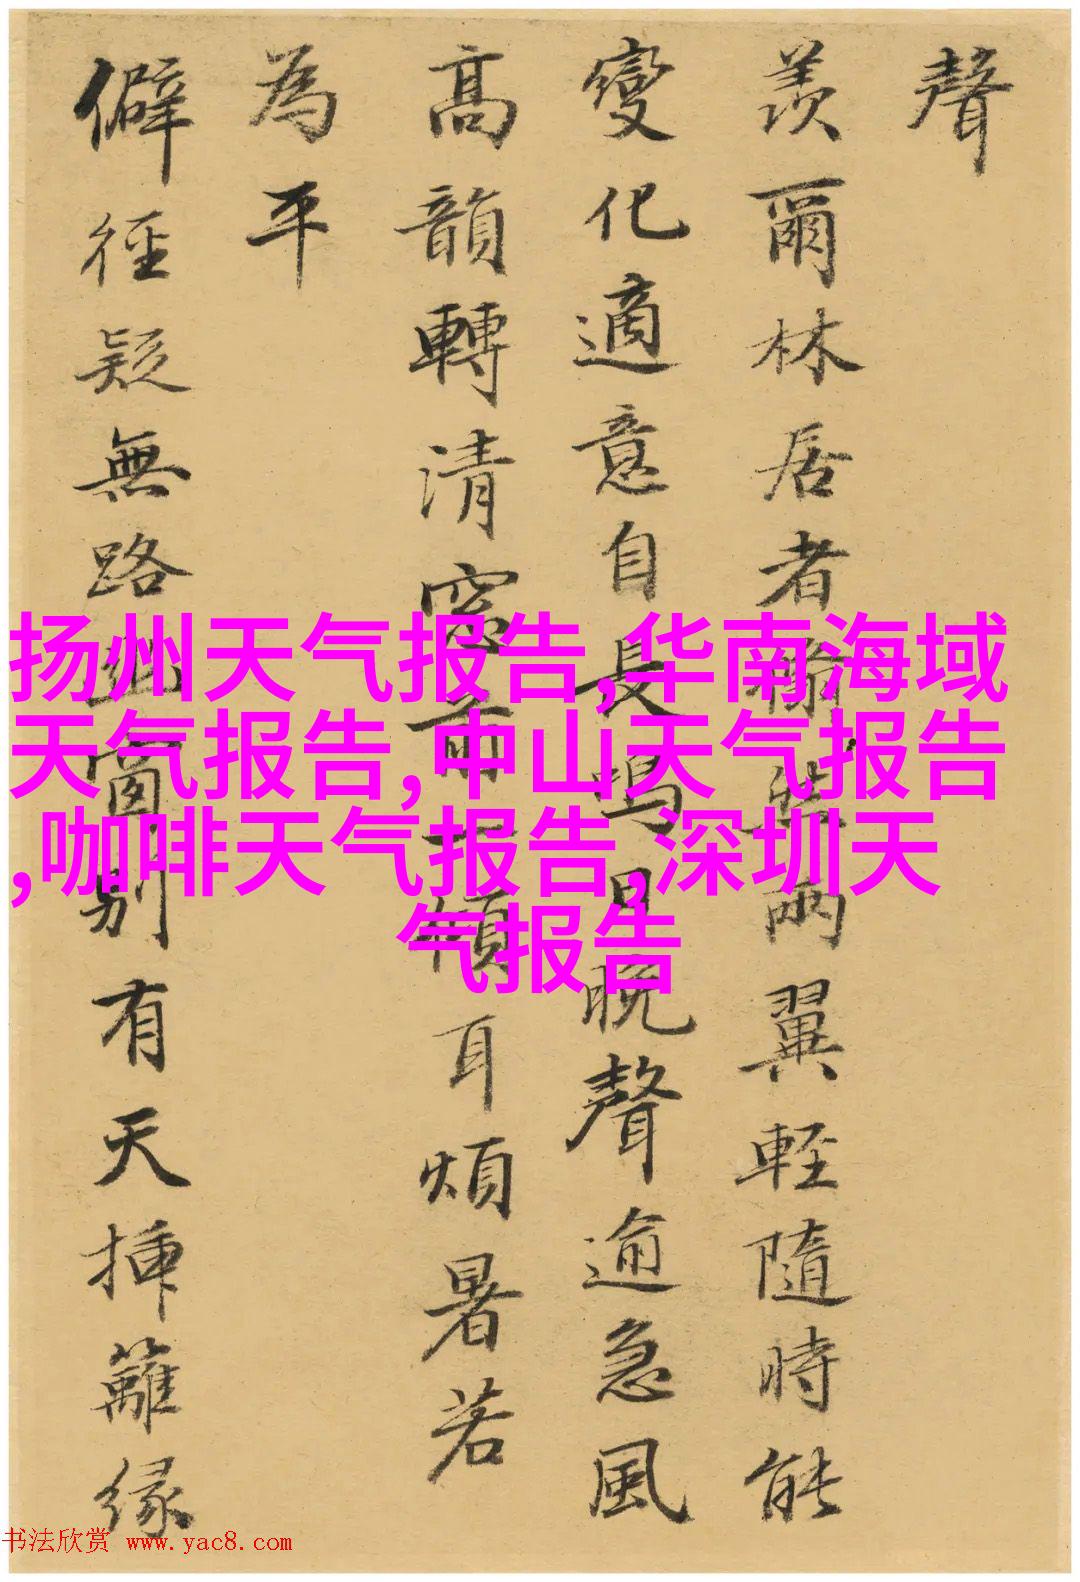 聲
羡爾林居者綸巾兩翼輕隨時能
變化適意自長鳴晨晚聲逾急風
高韻轉清窓前一傾耳煩暑若
為平
僻徑疑無路幽窗別有天揷籬緣
扬州天气报告,华南海域
天气报告,中山天气报告
,咖啡天气报告,深圳天
气报告
书法欣赏 www.yac8.com